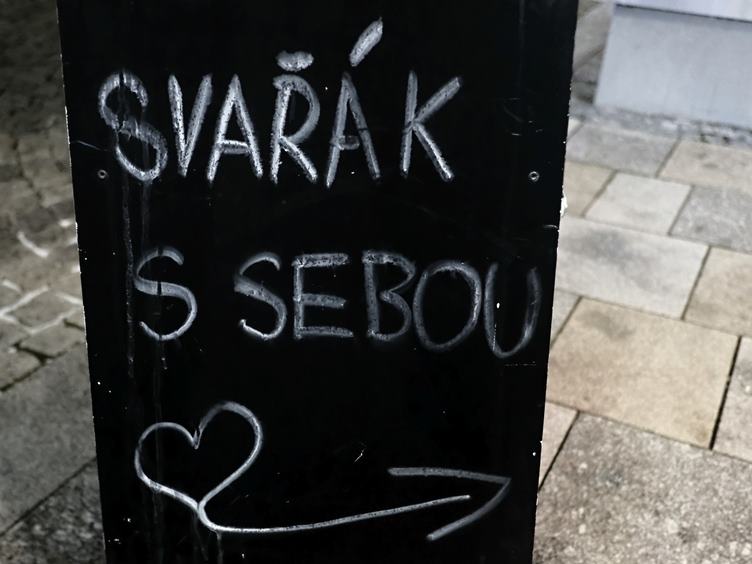 SVAŘÁK
S SEBOU